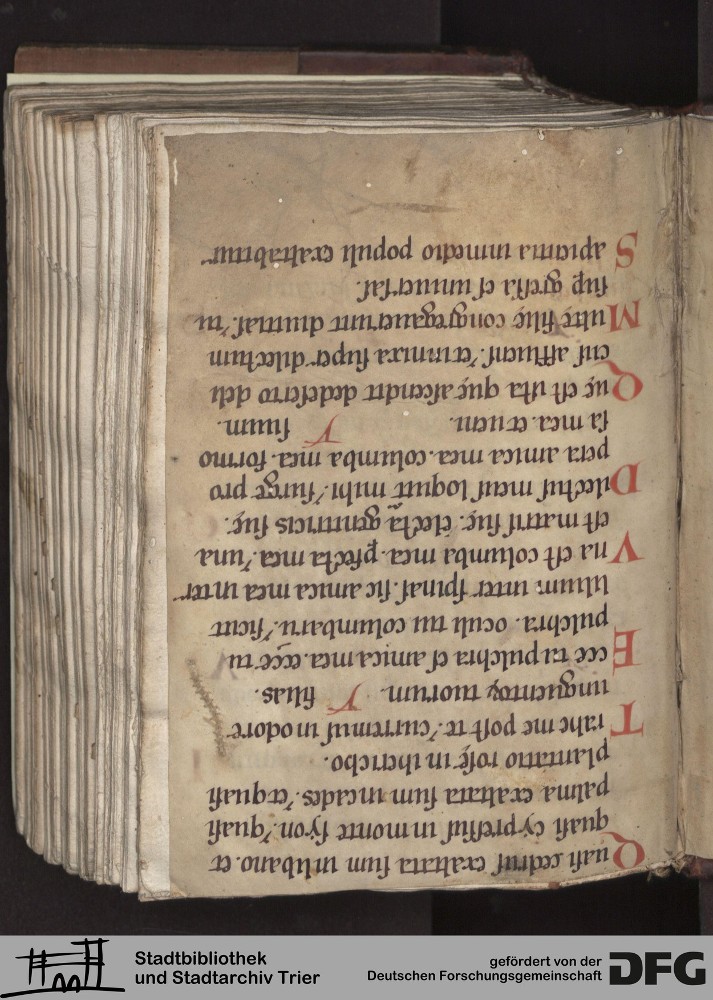 Quaſi cedruſ exaltata ſum inlibano. et
quaſi cypreſſuſ in monte ſyon. quaſi
palma exaltata ſum incades. et quaſi
plantatio roſę in ihericho.
Trahe me poſt te. curremuſ in odore
unguentoꝝ tuorum. V filias.
Ecce tu pulchra eſ amica mea. ecce tu
pulchra. oculi tui columbarū. ſicut
lilium inter ſpinaſ. ſic amica mea inter
Vna eſt columba mea. ꝑfecta mea. una
eſt matriſ ſuę. electa genitricis ſuę.
Dilectuſ meuſ loquit mihi. ſurge pro
pera amica mea. columba mea. formo
ſa mea. et ueni. V ſuum.
Quę eſt iſta quę aſcendit dedeſerto deli
ciiſ affluenſ. et innixa ſuper dilectum
Multę filię congregauerunt diuitiaſ. tu
ſuꝑ greſſa eſ uniuerſaſ.
Sapientia inmedio populi exaltabitur
Stadtbibliothek
und Stadtarchiv Trier
gefördert von der
Deutschen Forschungsgemeinschaft DFG